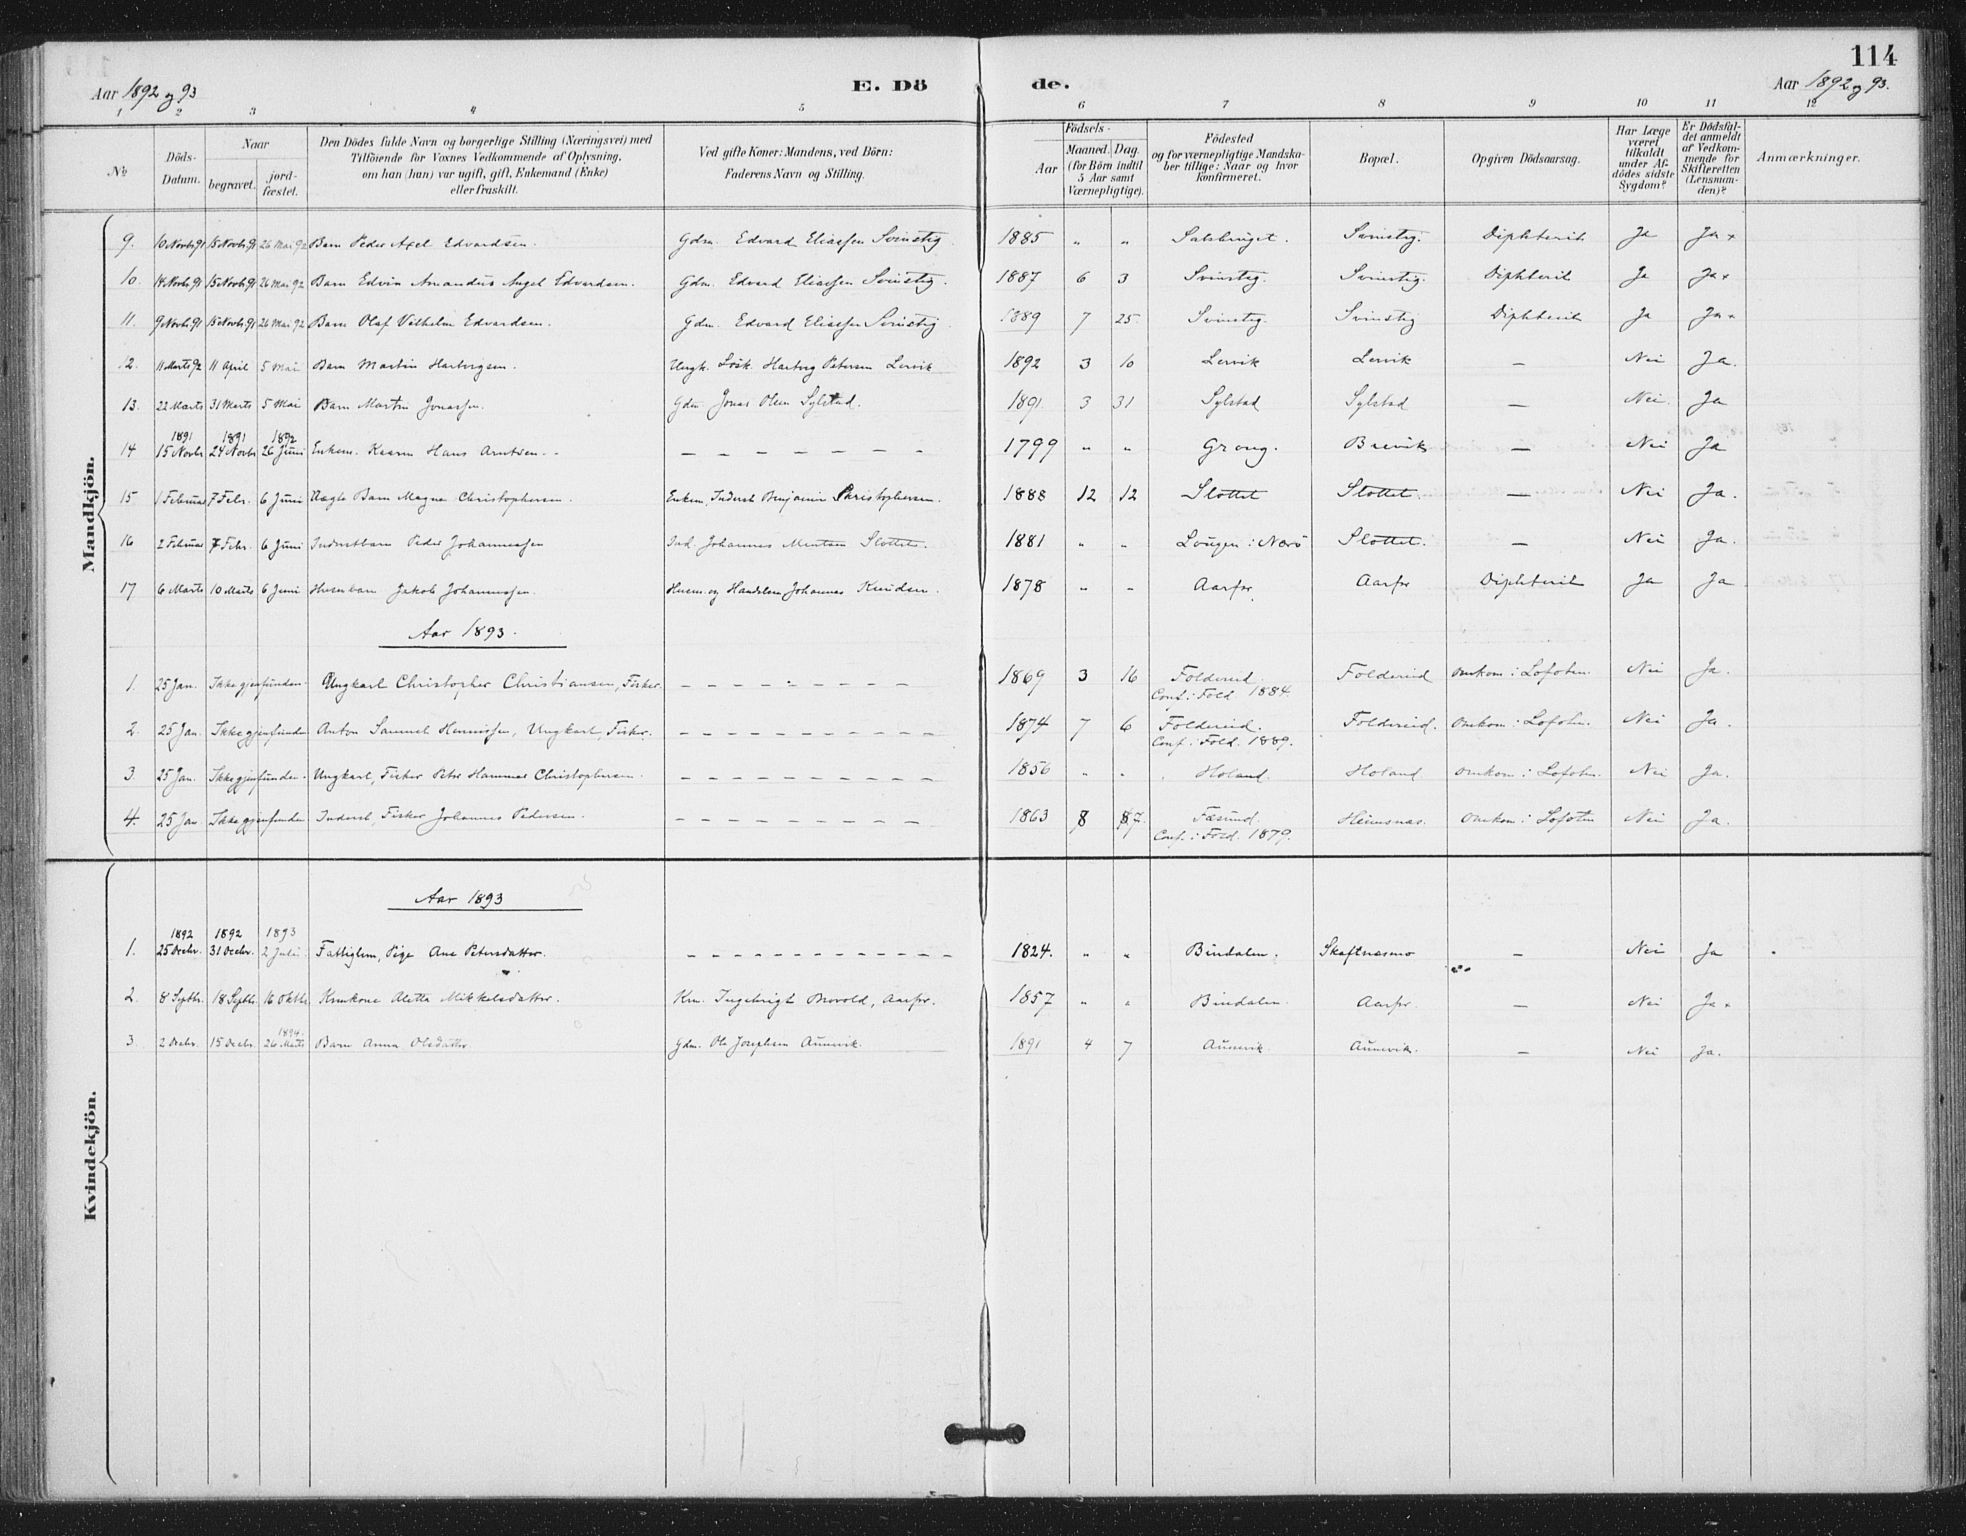 114
Aar 1892 og 93
E. Dö
de.
Aar 1892 og 93.
1 2 3 4 5 6 7 8 9 10 11 12
No
Döds-Datum.
Naar
begravet.
jordfæstet.
Den Dödes fulde Navn og borgerlige Stilling (Næringsvei) med
Tilföiende for Voxnes Vedkommende af Oplysning,
om han (hun) var ugift, gift, Enkemand (Enke)
eller fraskilt.
Ved gifte Koner: Mandens, ved Börn:
Faderens Navn og Stilling.
Födsels-
Aar
Maaned. Dag.
(for Börn indtil
5 Aar samt
Værnepligtige).
Födested
og for værnepligtige Mandska-
ber tillige: Naar og hvor
konfirmeret.
Bopæl.
Opgiven Dödsaarsag.
Har Læge
været
tilkaldt
under Af-
dödes sidste
Sygdom?
Er Dödsfal-
det anmeldt
af Vedkom-
mende for
Skifteretten
(Lensman-
den)?
Anmærkninger.
Mandkjön.
9. 10 Novbr 91 15 Novbr 91 26 Mai 92 Barn Peder Axel Edvardsen. Gdm. Edvard Eliassen Svinstig. 1885 " " Salsbruget. Svinstig. Diphterit Ja Ja
10. 14 Novbr 91 15 Novbr 91 26 Mai 92 Barn Edvin Amandus Angel Edvardsen. Gdm. Edvard Eliassen Svinstig. 1887 6 3 Svinstig. Svinstig. Diphterit Ja Ja
11. 9 Novbr 91 15 Novbr 91 26 Mai 92 Barn Olaf Vilhelm Edvardsen. Gdm. Edvard Eliassen Svinstig 1889 7 25 Svinstig. Svinstig Diphterit Ja Ja
12. 11 Marts 92 11 April 5 Mai Barn Martin Hartvigsen. Ungk. Hartvig Petersen Lervik 1892 3 10 Lervik Lervik — Nei Ja.
13. 22 Marts 31 Marts 5 Mai Barn Martin Jonassen. Gdm Jonas Olsen Sylstad. 1891. 3 31 Sylstad Sylstad — Nei. Ja
1891 1891 1892
14 15 Novbr 24 Novbr 26 Juni Enkem. Kaarm Hans Arntsen. – – – – – – – 1799 " " Grong. Brevik — Nei Ja
15 1 Februar 7 Febr. 6 Juni Uægte Barn Magna Christophersen. Enkem. Inderst Benjamin Christophersen. 1888 12 12 Slottet Slottet. — Nei Ja.
16 2 Februar 7 Febr. 6 Juni Inderstbarn Peder Johannessen Ind. Johannes Mentsen Slottet. 1881 " " Lougen i Nærö Slottet. — Nei Ja.
17 6 Marts 10 Marts 6 Juni Husmbarn Jakob Johannessen. Husm. og Handelsm Johannes Knudsen. 1878 " " Aarfor Aarfor Diphterit Ja Ja
Aar 1893.
1. 25 Jan. Ikke gjenfunden. Ungkarl Christopher Christiansen, Fisker. – – – – – – – – – 1869 3 16 Foldereid. Foldereid omkom i Lofoten. Nei Ja.
Conf. i Fold 1884
2. 25 Jan. Ikke gjenfunden Anton Samuel Henrissen, Ungkarl, Fisker. – – – – – – – – – – 1874 7 6 Foldereid. Foldereid. omkom i Lofoten. Nei Ja.
Conf. i Fold. 1889.
3. 25 Jan. Ikke gjenfunden. Ungkarl, Fisker Peter Hammer Christophersen. – – – – – – – – – – 1856 " " Holand. Holand omkom i Lofoten. Nei Ja.
4. 25 Jan Ikke gjenfunden Inderst, Fisker Johannes Pedersen. – – – – – – – – – 1863 8 7. Heimsnæs. omkom i Lofoten Nei Ja.
Conf. i Fold. 1879.
Kvindekjön.
Aar 1893
1892 1892 1893
1. 25 Decbr. 31 Decbr. 2 Juli. Fattiglem, Pige Ane Petersdatter. – – – – – – – – – – – – 1824. " " Bindalen. Skaftnæsmo — Nei Ja
2. 8 Septbr. 18 Septbr. 16 Oktbr. Kmkone Aletta Mikkelsdatter. Km. Ingebrigt Brovold, Aarfor. 1857 " " Bindalen. Aarfor — Nei Ja
1894.
3. 2 Decbr. 15 Decbr. 26 Marts Barn Anna Olsdatter. Gdm. Ole Josephsen Aunevik. 1891 4 7 Aunevik. Aunevik. — Nei Ja.